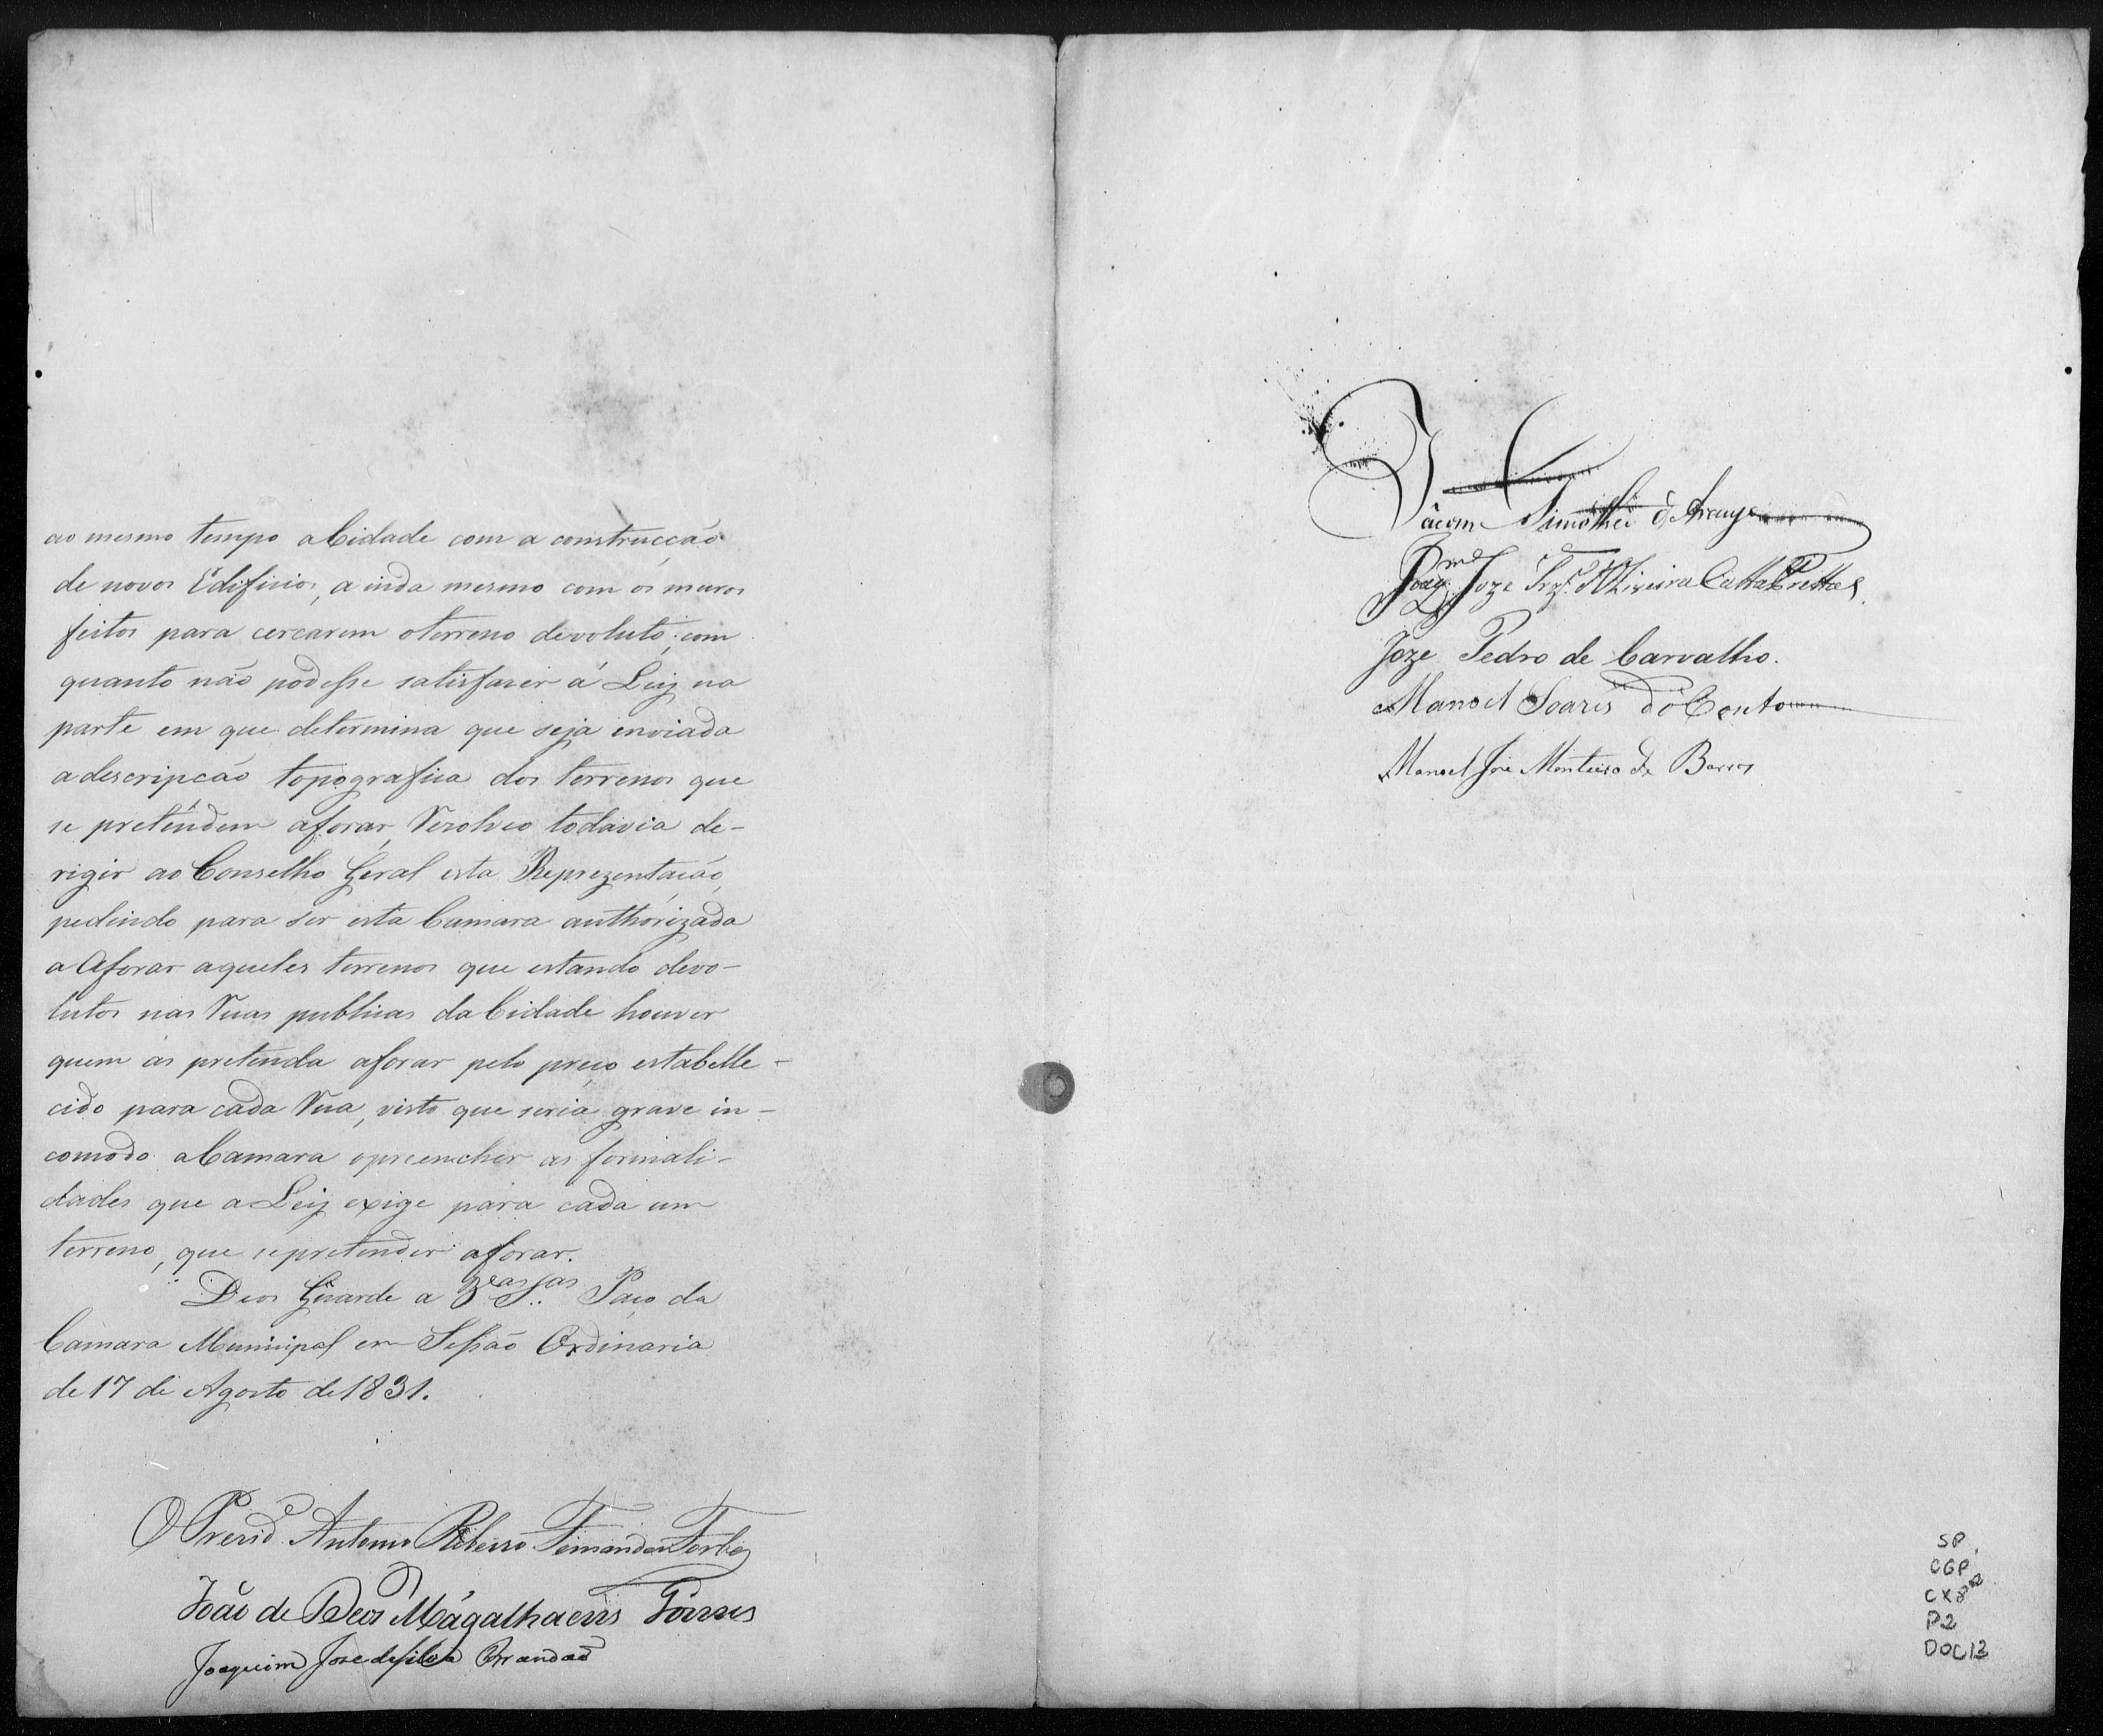 ao mesmo tempo a Cidade com a construcção
de novos Edificios, ainda mesmo com os muros
feitos para cercarem o terreno devoluto; com
quanto não podesse satisfaser á Ley na
parte em que determina que seja enviada
a descripção topografica dos terrenos que
se pretendem aforar, Resolveo todavia de-
rigir ao Conselho Geral esta Reprezentação,
pedindo para ser esta Camara authorizada
a Aforar aqueles terrenos que estando devo-
lutos nas Ruas publicas da Cidade houver
quem os pretenda aforar pelo preço estabelle-
cido para cada Rua, visto que seria grave in-
comodo a Camara o preencher as formali-
dades que a Ley exige para cada um
terreno, que se pretender aforar.
Deos Guarde a V.as S.as Paço da
Camara Municipal em Sessão Ordinaria
de 17 de Agosto de 1831.
O Prezid.e Antonio Ribeiro Fernandes Forbes
João de Deos Magalhaens Gomes
Joaquim Jose da Silva Brandaõ
Timotheo d'Araujo
Joaq.m Joze d'Oliveira Catta Pretta
Joze Pedro de Carvalho.
Manoel Soares do Couto
Manoel José Monteiro de Barros
SP
CGP
CX8
P2
DOC13